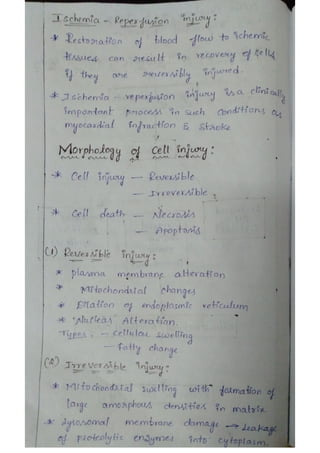 Ischemia - Reperfusion injury:
* Restoration of blood flow to ischemic
tissues can result in recovery of cells
if they are reversibly injured.
* Ischemia - reperfusion injury is a clinically
important process in such conditions as
myocardial infraction & stroke
Morphology of Cell injury:
* Cell injury — Reversible
— Irreversible
* Cell death — Necrosis
— Apoptosis
(1) Reversible injury:
* plasma membrane alteration
* Mitochondrial changes
* Dilation of endoplasmic reticulum
* Nuclear Alteration.
Types: - Cellular swelling
- Fatty change
(2) Irreversible injury:
* Mitochondrial swelling with formation of
large amorphous densities in matrix
* Lysosomal membrane damage → Leakage
of proteolytic enzymes into cytoplasm.